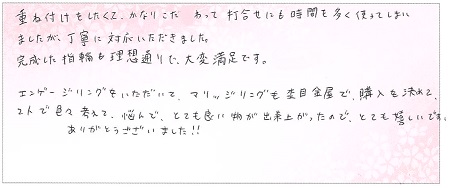 重ね付けをしたくて、かなりこだわって打合せにも時間を多く使ってしまい
ましたが、丁寧に対応いただきました。
完成した指輪も理想通りで、大変満足です。
エンゲージリングをいただいて、マリッジリングも杢目金屋で、購入を決めて、
2人で色々考えて、悩んで、とても良い物が出来上がったので、とても嬉しいです。
ありがとうございました!!